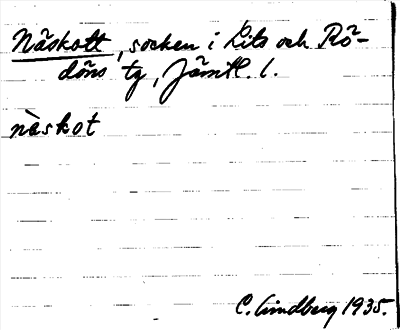 Näskott, socken i Lits och Rö-
döns tg, Jämtl. l.
näskot
C. Lindberg 1935.